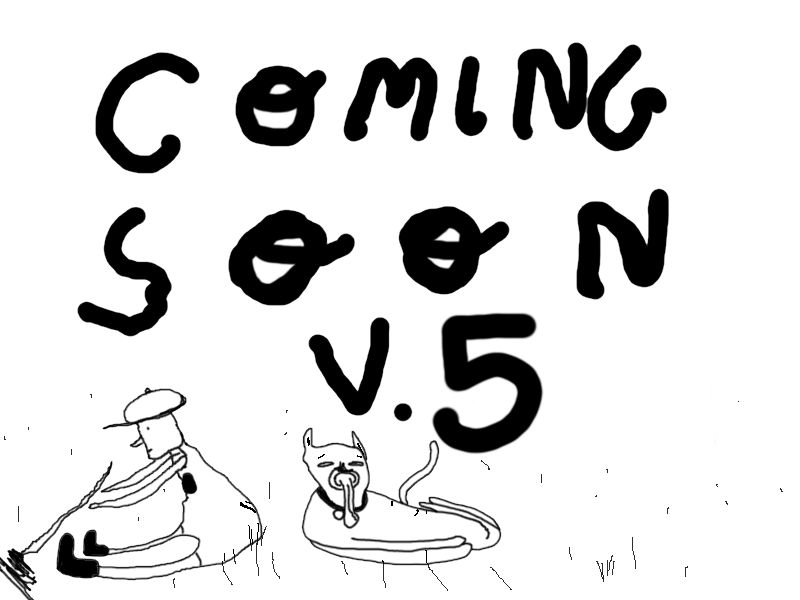 COMING
SOON
V.5